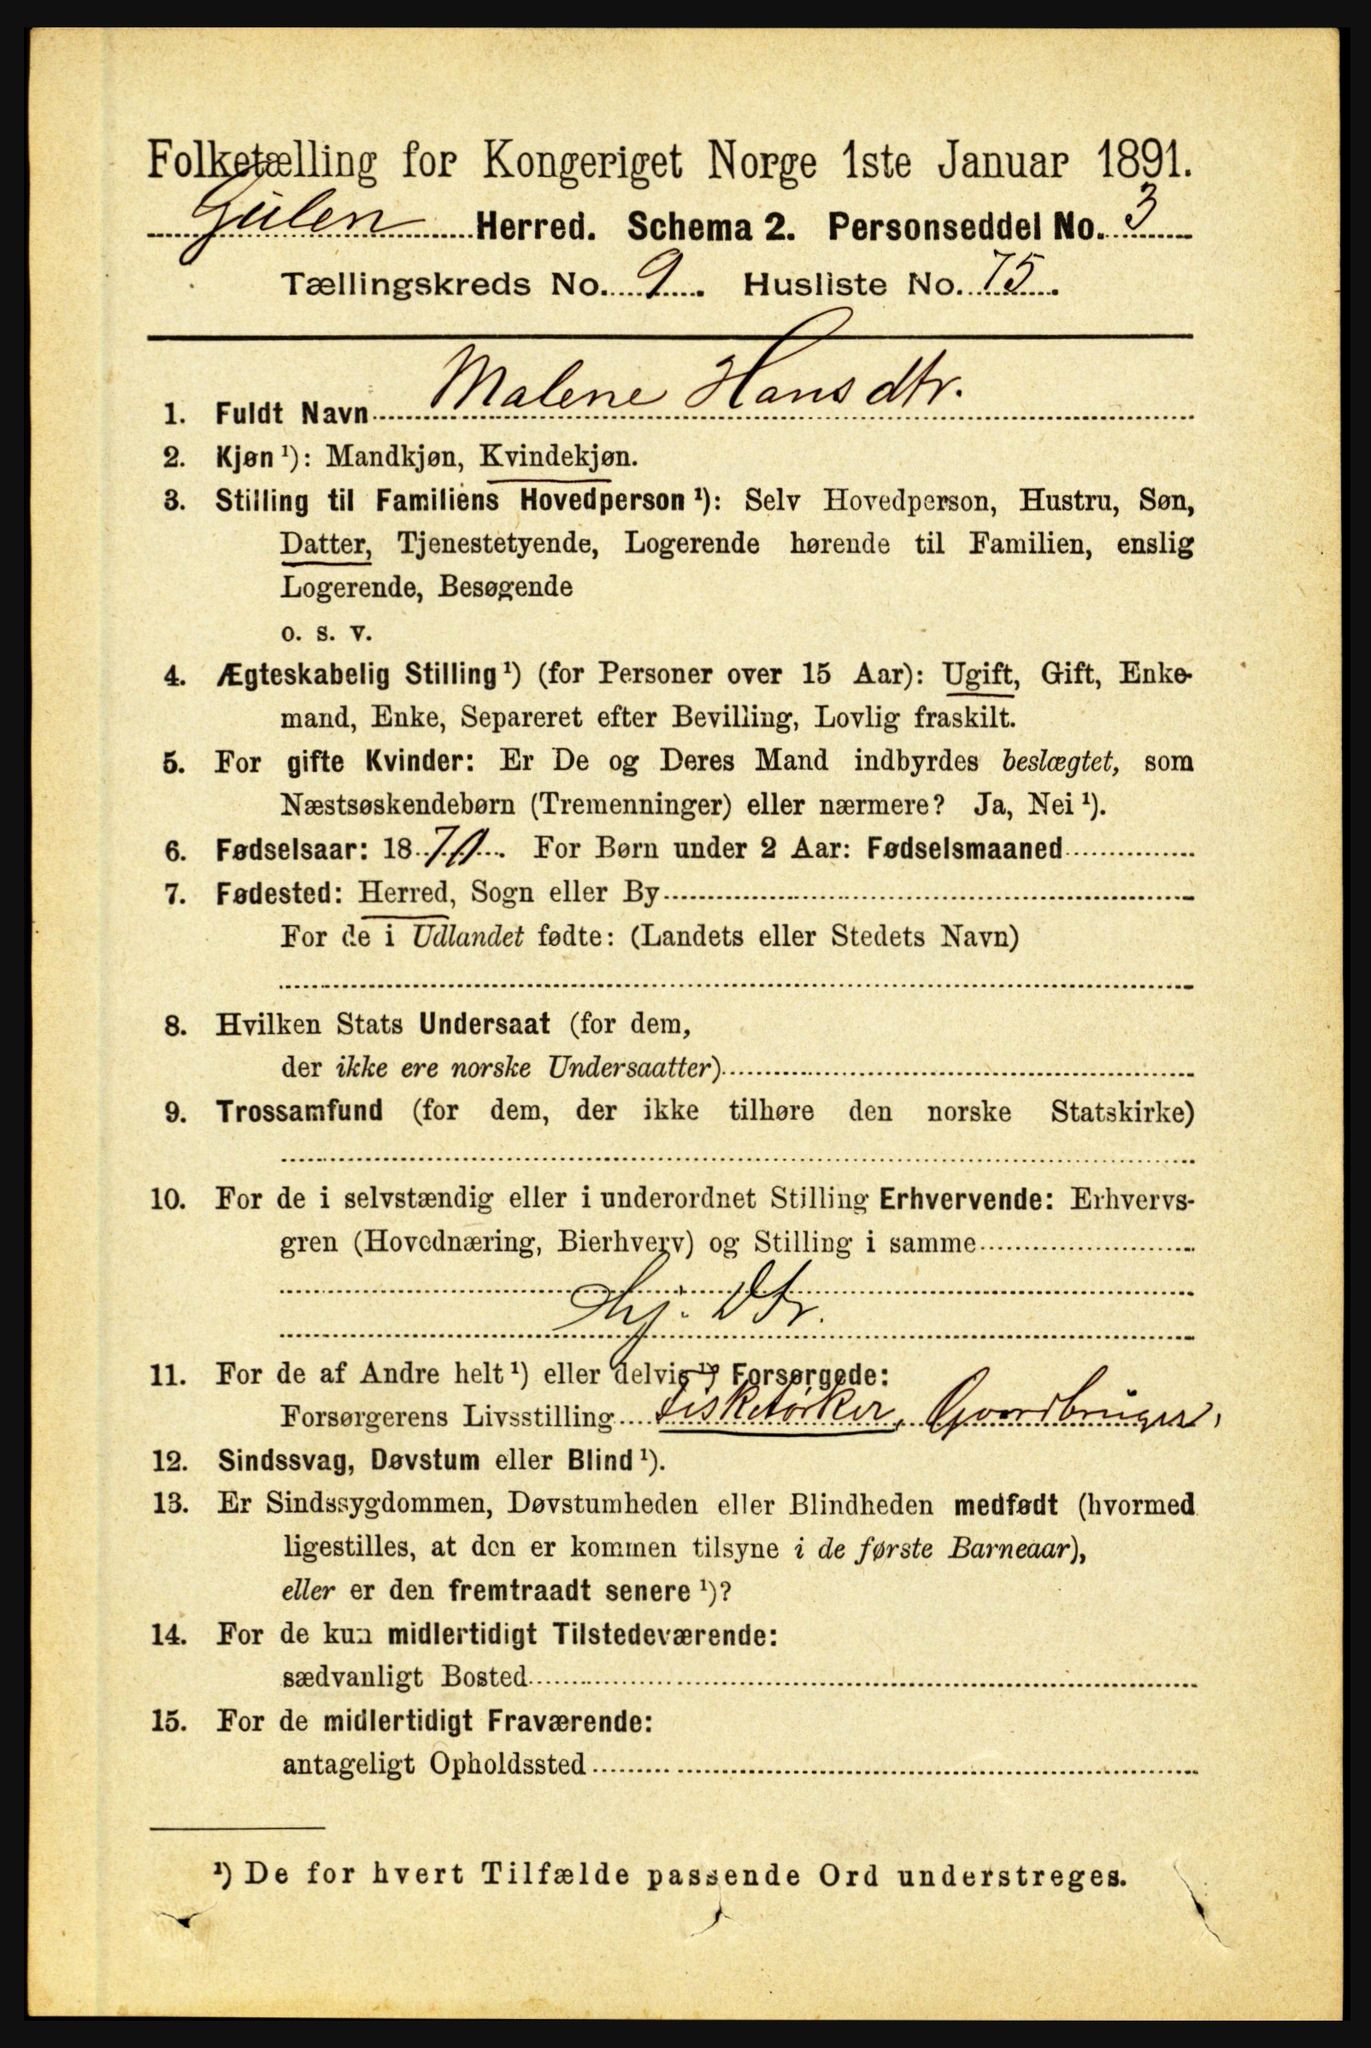 Folketælling for Kongeriget Norge 1ste Januar 1891.
Gulen Herred. Schema 2. Personseddel No. 3
Tællingskreds No. 9. Husliste No. 75.
1. Fuldt Navn Malene Hansdtr.
2. Kjøn ¹): Mandkjøn, Kvindekjøn.
3. Stilling til Familiens Hovedperson ¹): Selv Hovedperson, Hustru, Søn,
Datter, Tjenestetyende, Logerende hørende til Familien, enslig
Logerende, Besøgende
o. s. v.
4. Ægteskabelig Stilling ¹) (for Personer over 15 Aar): Ugift, Gift, Enke-
mand, Enke, Separeret efter Bevilling, Lovlig fraskilt.
5. For gifte Kvinder: Er De og Deres Mand indbyrdes beslægtet, som
Næstsøskendebørn (Tremenninger) eller nærmere? Ja, Nei ¹).
6. Fødselsaar: 1870. For Børn under 2 Aar: Fødselsmaaned
7. Fødested: Herred, Sogn eller By
For de i Udlandet fødte: (Landets eller Stedets Navn)
8. Hvilken Stats Undersaat (for dem,
der ikke ere norske Undersaatter)
9. Trossamfund (for dem, der ikke tilhøre den norske Statskirke)
10. For de i selvstændig eller i underordnet Stilling Erhvervende: Erhvervs-
gren (Hovednæring, Bierhverv) og Stilling i samme
Hj. Dtr.
11. For de af Andre helt ¹) eller delvis ¹) Forsørgede:
Forsørgerens Livsstilling Fisketörker, Gaardbruger,
12. Sindssvag, Døvstum eller Blind ¹).
13. Er Sindssygdommen, Døvstumheden eller Blindheden medfødt (hvormed
ligestilles, at den er kommen tilsyne i de første Barneaar),
eller er den fremtraadt senere ¹)?
14. For de kun midlertidigt Tilstedeværende:
sædvanligt Bosted
15. For de midlertidigt Fraværende:
antageligt Opholdssted
¹) De for hvert Tilfælde passende Ord understreges.